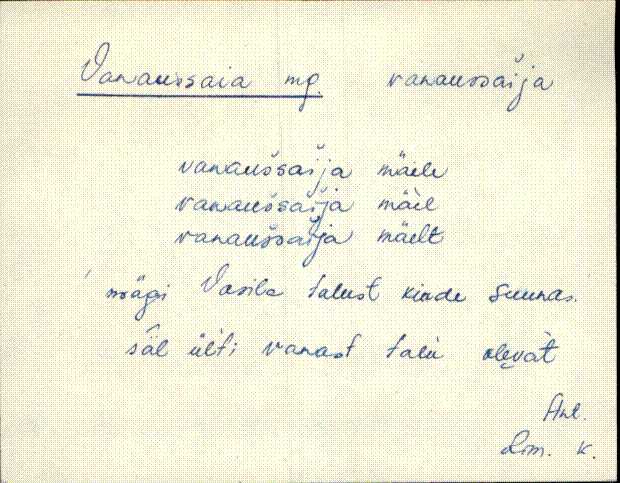 Vanaussaia mg. vanaussaija
vanaussaija mäele
vanaussaija mäel
vanaussaija mäelt
mägi Vasila talust kirde suunas.
säl ülti vanast talu olevat
Ant.
k.